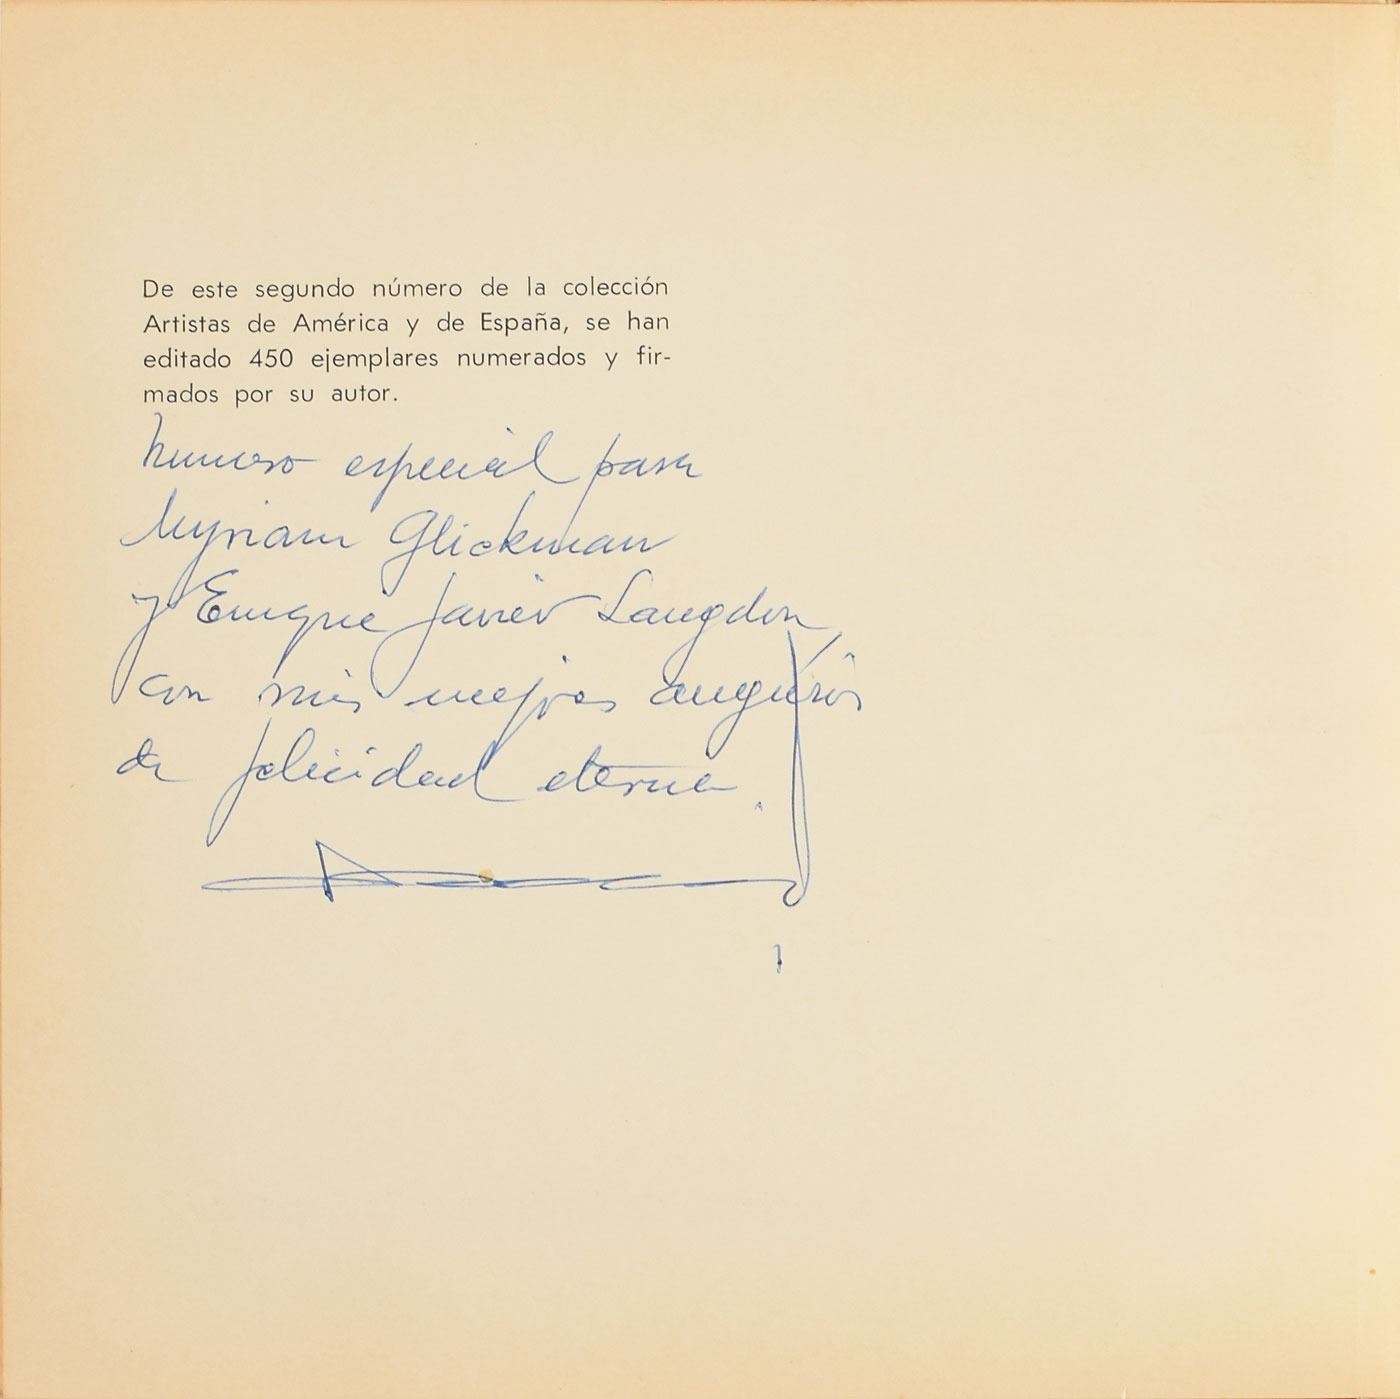 De este segundo número de la colección
Artistas de América y de España, se han
editado 450 ejemplares numerados y fir-
mados por su autor.
numero especial para
Myriam Glickman
y Enrique Javier Langdon,
con mis mejores augurios
de felicidad eterna.